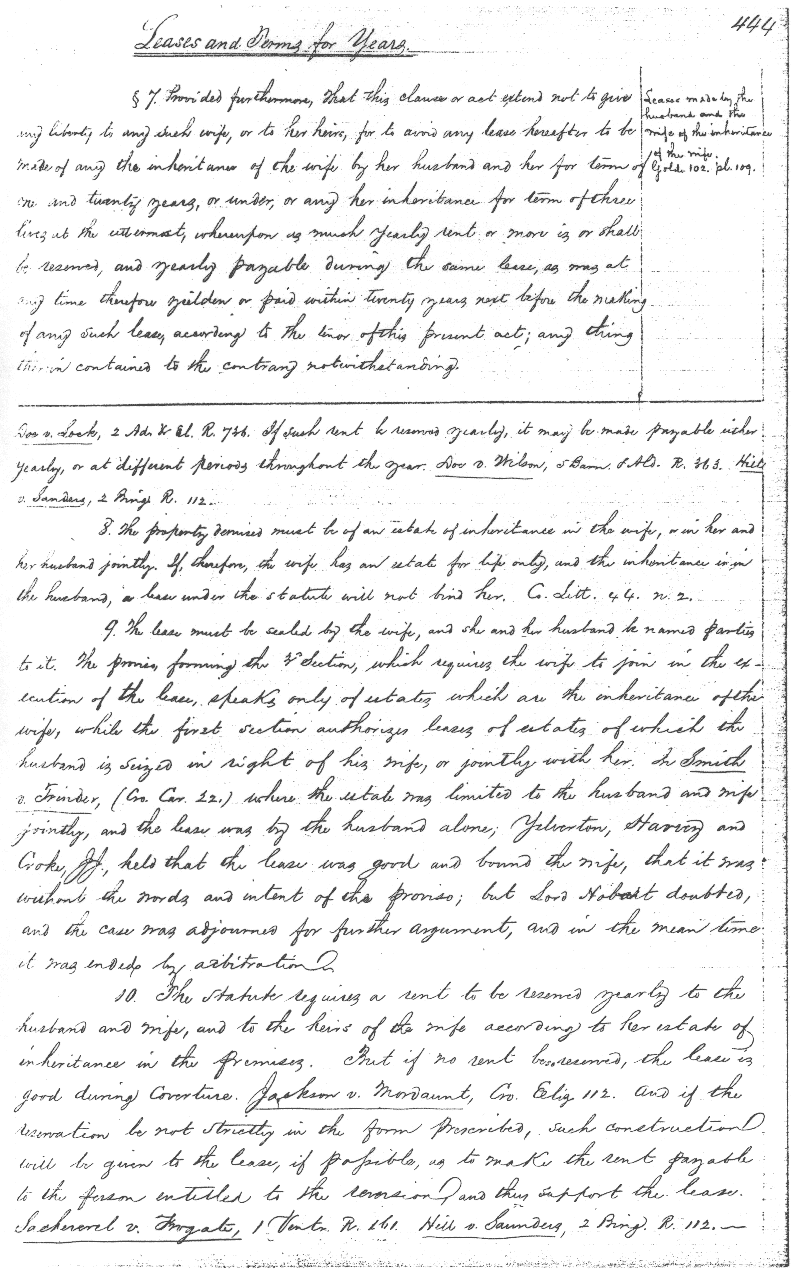 444
Leases and Terms for Years.
§ 7. Provided furthermore, That this clause or act extend not to give
any liberty to any such wife, or to her heirs, for to avoid any lease hereafter to be
made of any the inheritance of the wife by her husband and her for term of
one and twenty years, or under, or any her inheritance for term of three
lives at the uttermost, whereupon as much yearly rent or more is or shall
be reserved, and yearly payable during the same lease, as was at
any time therefore yeilden or paid within twenty years next before the making
of any such lease, according to the tenor of this present act; any thing
therein contained to the contrary notwithstanding.
Leases made by the
husband and the
wife of the inheritance
of the wife.
Golds. 102. pl. 109.
Doe v. Lock, 2 Ad. & El. R. 736. If such rent be reserved yearly, it may be made payable either
yearly, or at different periods throughout the year. Doe v. Wilson, 5 Barn. & Ald. R. 363. Hill
v. Sanders, 2 Bing R. 112.
8. The property demised must be of an estate of inheritance in the wife, or in her and
her husband jointly. If, therefore, the wife has an estate for life only, and the inheritance is in
the husband, a lease under the statute will not bind her. Co. Litt. 44. n. 2.
9. The lease must be sealed by the wife, and she and her husband be named parties
to it. The proviso forming the Section, which requires the wife to join in the ex-
ecution of the lease, speaks only of estates which are the inheritance of the
wife, while the first section authorizes leases of estates of which the
husband is seized in right of his wife, or jointly with her. In Smith
v. Trinder, (Cro. Car. 22.) where the estate was limited to the husband and wife
jointly, and the lease was by the husband alone; Yelverton, Harvey and
Croke, JJ., held that the lease was good and bound the wife, that it was
without the words and intent of the proviso; but Lord Hobart doubted,
and the case was adjourned for further argument, and in the mean time
it was ended by arbitration.
10. The statute requires a rent to be reserved yearly to the
husband and wife, and to the heirs of the wife according to her estate of
inheritance in the premises. But if no rent be reserved, the lease is
good during Coverture. Jackson v. Mordaunt, Cro. Eliz 112. And if the
reservation be not strictly in the form prescribed, such construction
will be given to the lease, if possible, as to make the rent payable
to the person entitled to the reversion, and thus support the lease.
Sacheverel v. Frogate, 1 Ventr. R. 161. Hill v. Saunders, 2 Bing. R. 112.—